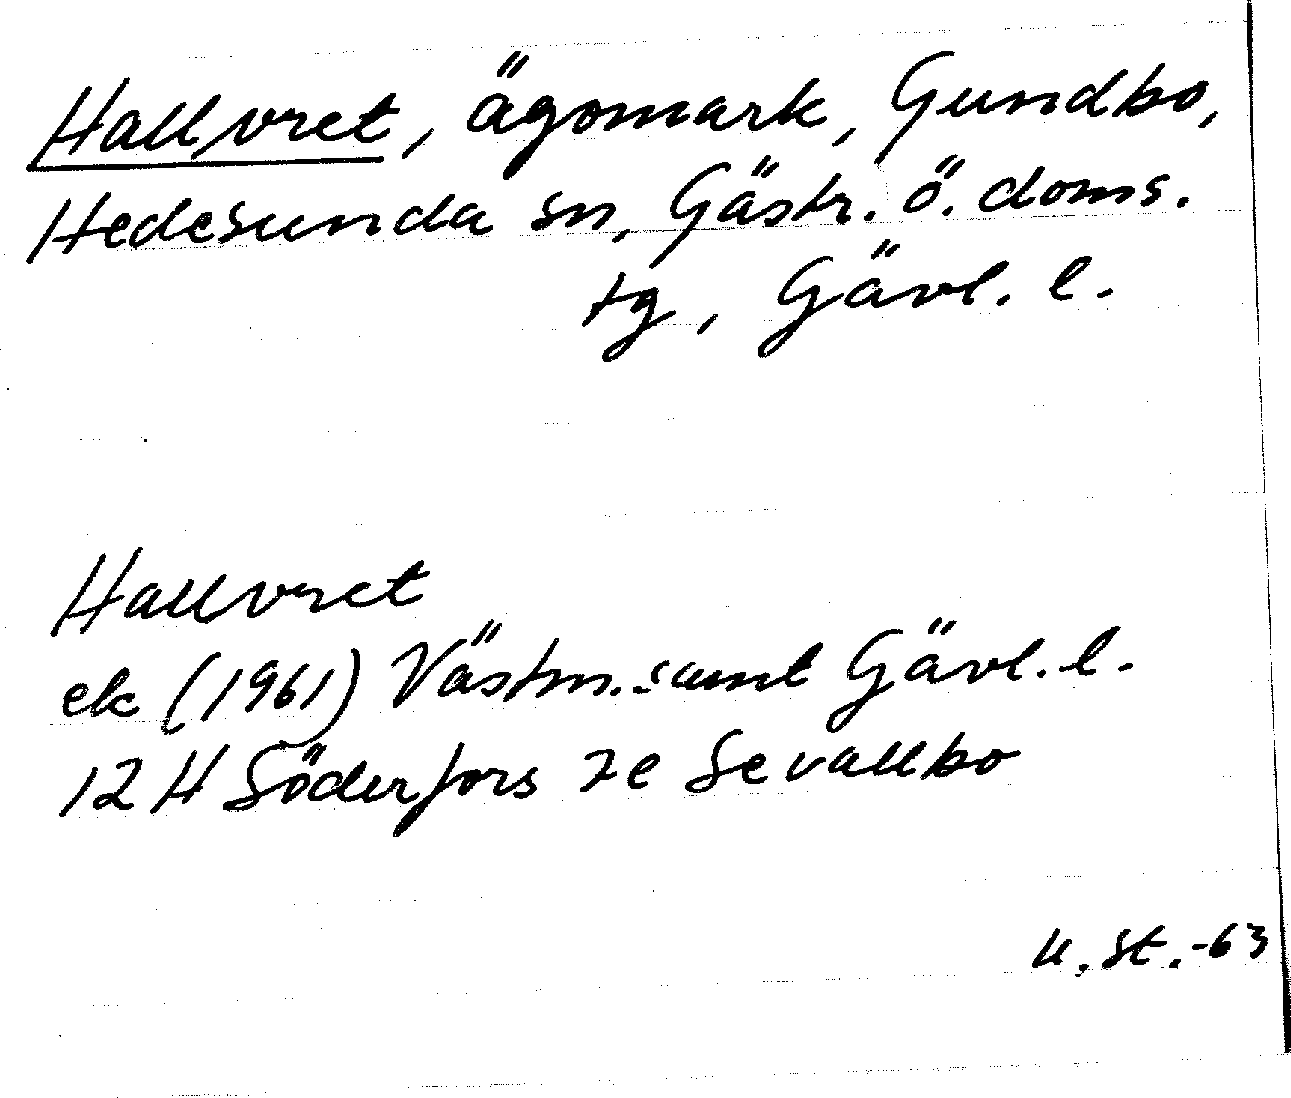 Hallvret, ägomark, Gundbo,
Hedesunda sn, Gästr. ö. doms.
tg, Gävl. l.
Hallvret
ek (1961) Västm. samt Gävl. l.
12 H Söderfors 7e Sevallbo
U. St. -63